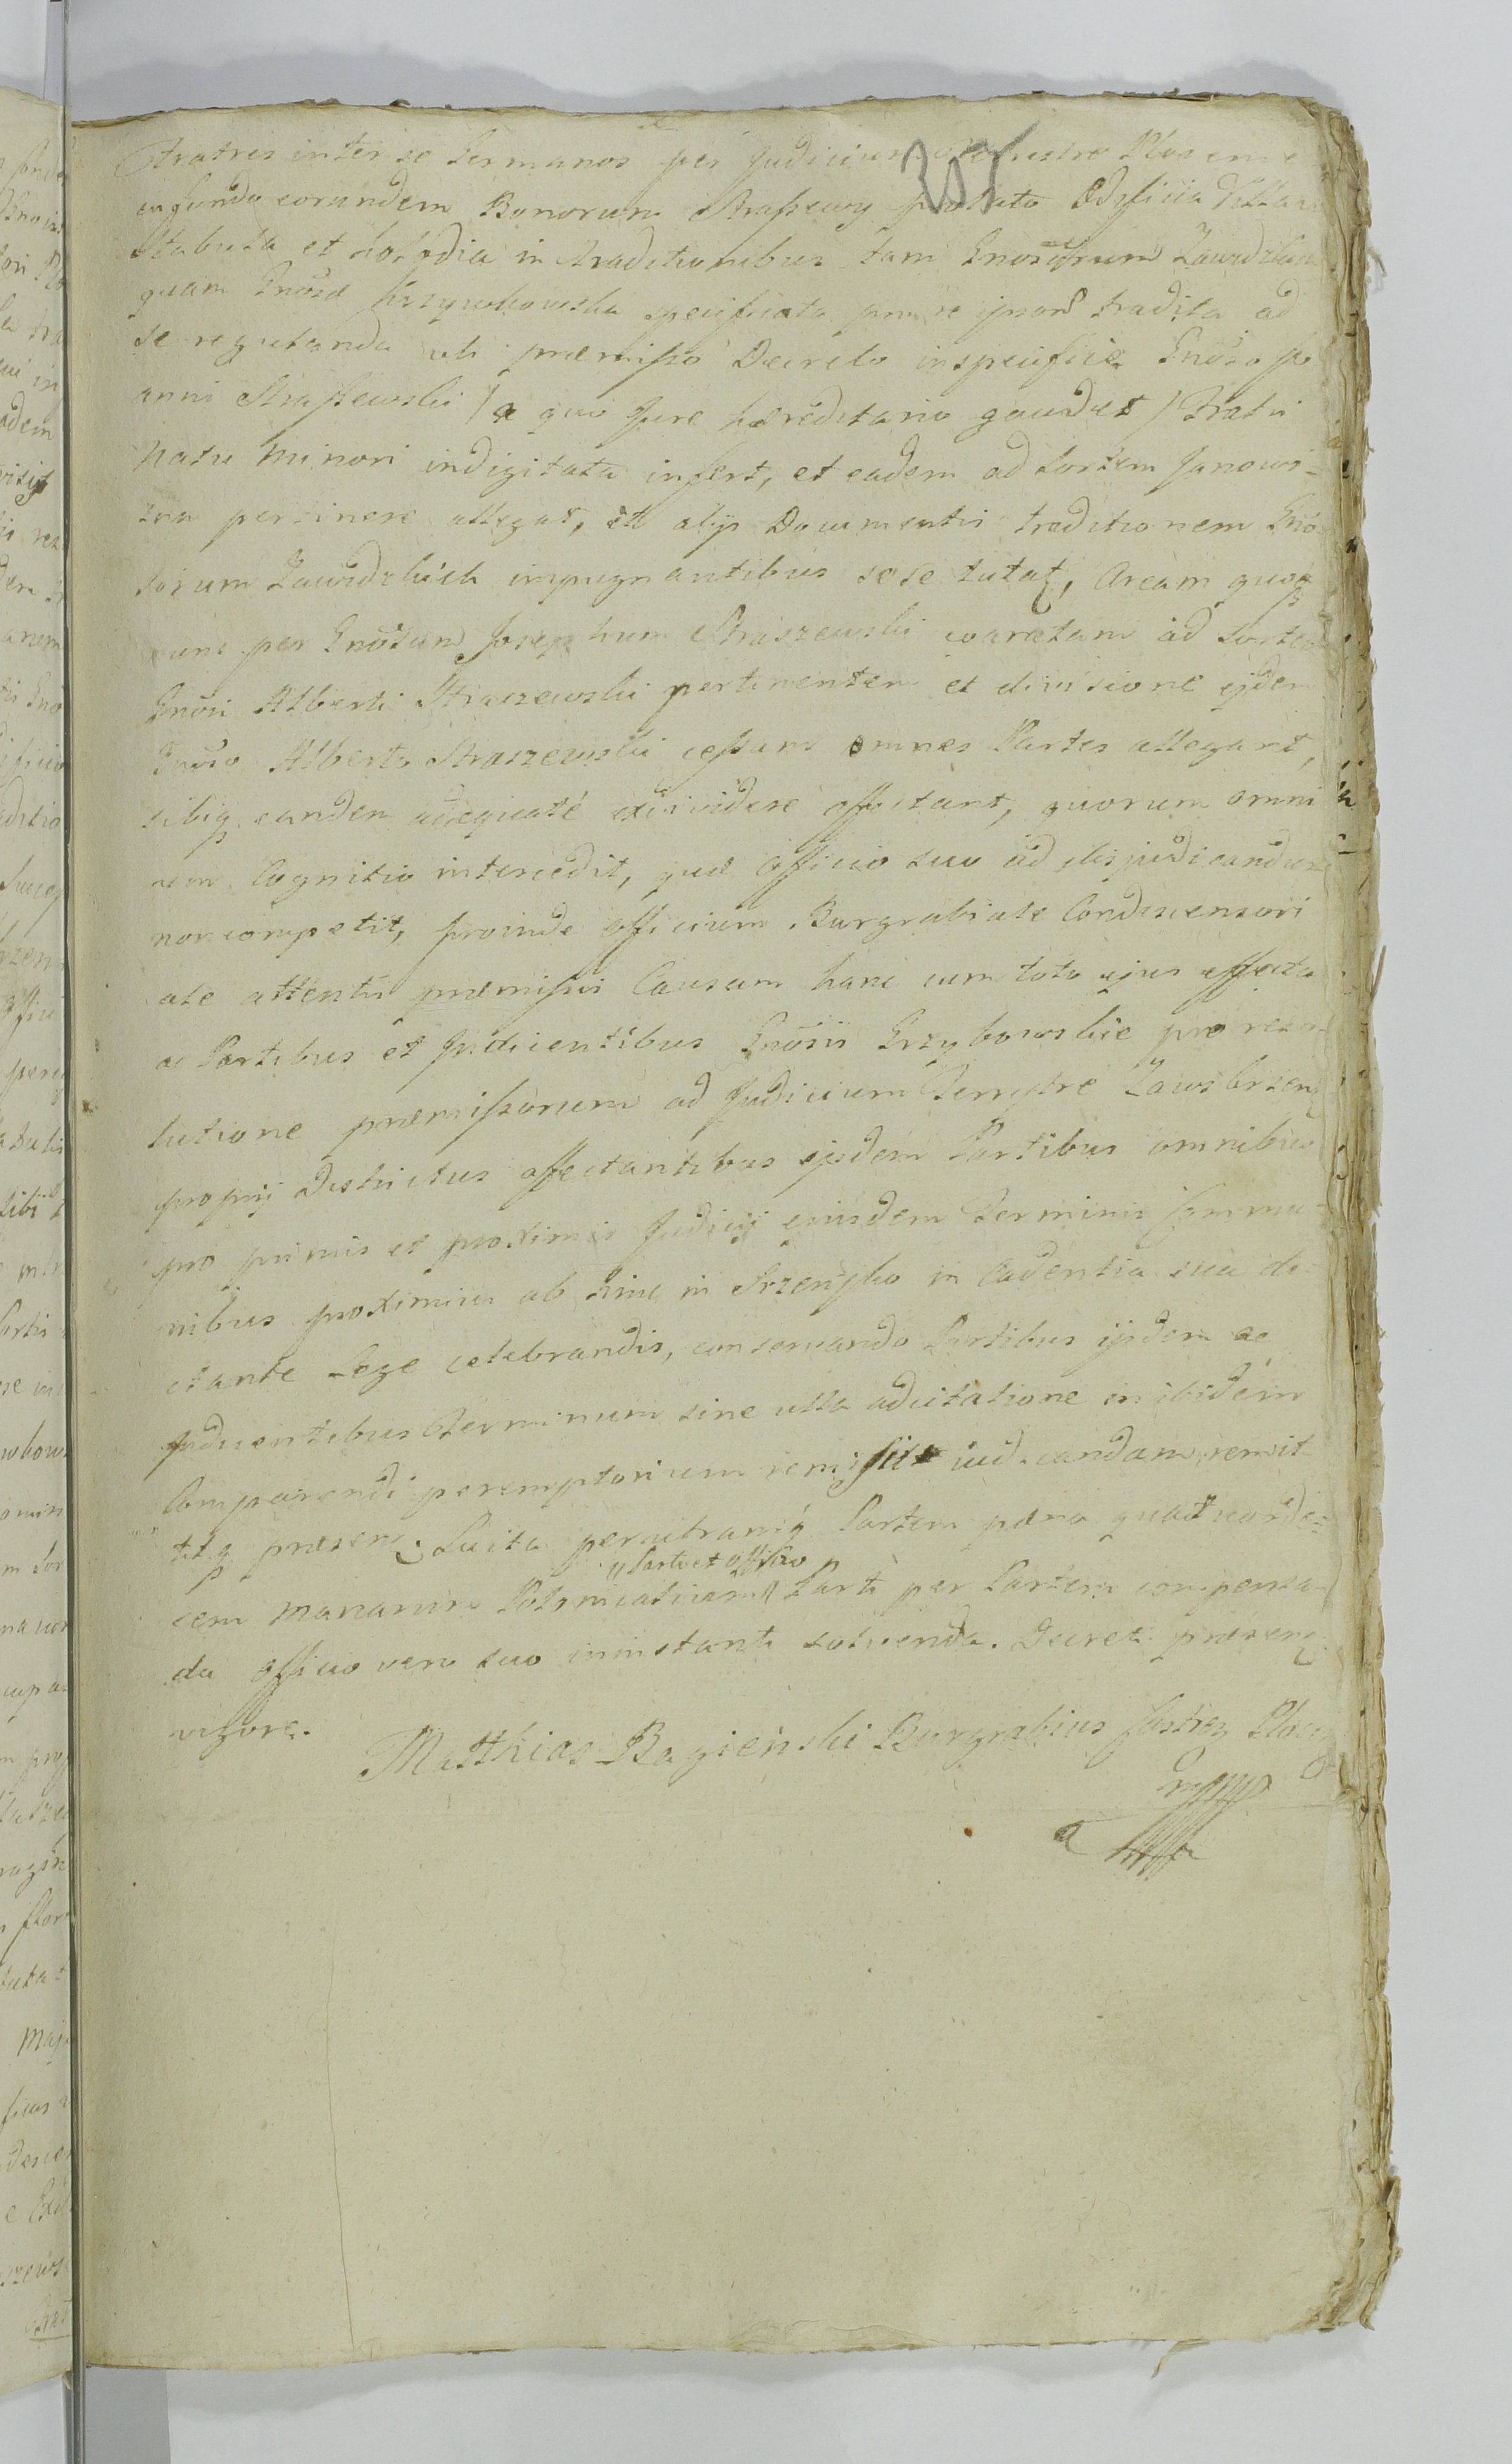 Fratres inter se Germanos per Judicium Terrestre Plocense
305
in fundo eorundem Bonorum Straszewy prolato Ædificia Villana
Stabula et in Traditionibus tam Gnosorum Zawidzkie
quam Gnosæ Krzywkowska specificata jure ipsor tradita ad
se regulanda uti præmisso Decreto in specifice Gnoso Jo
anni Straszewski / a quo Jure hæreditario gaudet / Fratri
Natu Minori indigitata infert, et eadem ad Sortem Janowi-
zna pertinere allegat, et alijs Documentis traditionem Gno
sorum Zawidzkich impugnantibus sese tutat, Aream quoq
nunc per Gnosum Josephum Straszewski coarctam ad Sortem
Gnosi Alberti Straszewski pertinentem et divisione ejdem
Gnoso Alberto Straszewski cessam omnes Partes allegant,
sibiq eandem adæquaté exdividere affectant, quorum omni
um Cognitio intercedit, quæ Officio suo ad disjudicandum
non competit, proinde Officium Burgrabiale Condescensori
ale attentis præmissis Causam hanc cum toto ejus effectu
ac Partibus et Inducentibus Gnosis Grzybowskie pro reso-
lutione præmissorum ad Judicium Terrestre Zawskrzen
proprij Districtus affectantibus ijsdem Partibus omnibus
pro primis et proximis Judicij ejusdem Terminis Commu-
nibus proximius ab hinc in Srzeńsko in Cadentia sua di-
ctante Lege celebrandis, conservando Partibus ijsdem ac
Inducentibus Terminum sine ulla adcitatione inibidem
Comparendi peremptorium remisit iudicandam remit
titq præsen: Luita per utramq Partem pæna quatuorde=
cem Marcarum Polonicalium // Parti per Partem compensan
// Parti et Officio
da Officio vero suo in instanti solvenda. Decreti præsen:
vigore.
Matthias Bagieński Burgrabius Castren Plocen
mppa